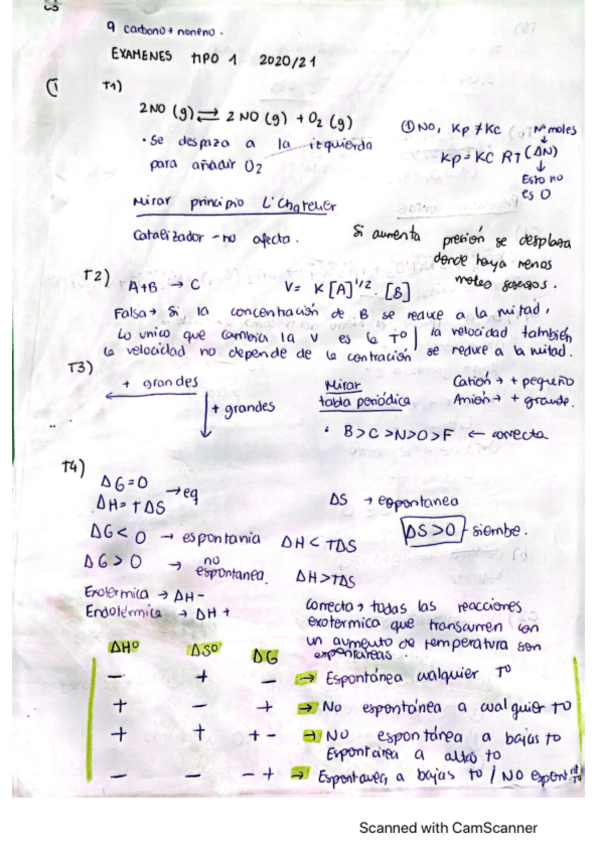 9 carbono → noneno.
EXAMENES TIPO 1 2020/21
T1)
2NO (g) ⇄ 2 NO (g) + O2 (g)
· Se despaza a la izquierda
para añadir O2
① No, Kp ≠ Kc Nº moles
Kp = KC RT (ΔN)
Esto no
es 0
Mirar principio L'Chatelier
Catalizador - no afecta.
Si aumenta presión se desplaza
donde haya menos
moles gaseosos.
T2)
A+B → C V = K [A]^1/2 · [B]
Falsa → Si, la concentración de B se reduce a la mitad,
Lo unico que cambia la v es la Tº | la velocidad también
la velocidad no depende de la contración se reduce a la mitad.
T3)
+ grandes
+ grandes
Mirar
tabla periódica
Catión → + pequeño
Anión → + grande.
· B > C > N > O > F ← correcta
T4)
ΔG = 0
ΔH = TΔS → eq
ΔS → espontanea
ΔG < 0 → espontania ΔH < TΔS
ΔS > 0 - siembe.
ΔG > 0 → no espontanea. ΔH > TΔS
Exotérmica → ΔH -
Endotérmica → ΔH +
correcta → todas las reacciones
exotermica que transcurren con
un aumento de temperatura son
espontáreas.
ΔHº ΔSº ΔG
- + - → Espontánea cualquier Tº
+ - + → No espontánea a cualquier Tº
+ + + - → NO espontánea a bajas tº
Espontairea a altas tº
- - - + → Espontanea, a bajas tº / NO espont
Scanned with CamScanner